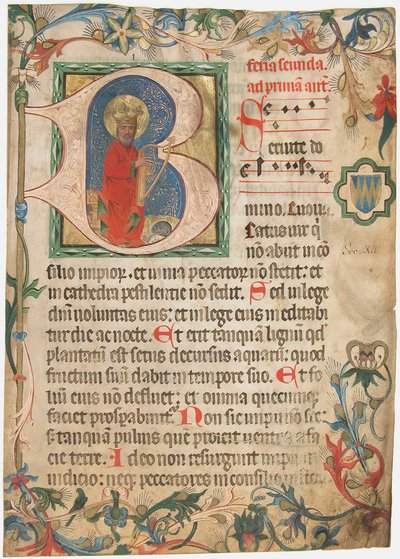 feria secunda
ad primā añt.
Seruite do
mino. Euoue
B
Eatus uir q̄
nō abijt in cō
silio impior. et in uia peccator nō stetit: et
in cathedra pestilentie nō sedit. Sed in lege
dm̄ voluntas eius: et in lege eius meditabi
tur die ac nocte. Et erit tanquā lignū qd
plantatū est secus decursus aquarū: quod
fructum suū dabit in tempore suo. Et fo
liū eius nō defluet: et omnia quecunq̄
faciet prosperabunt. Non sic impij nō sic:
s; tanquā puluis quē proicit uentus a fa
cie terre. Ideo non resurgunt impij in
iudicio: neq; peccatores in consilio